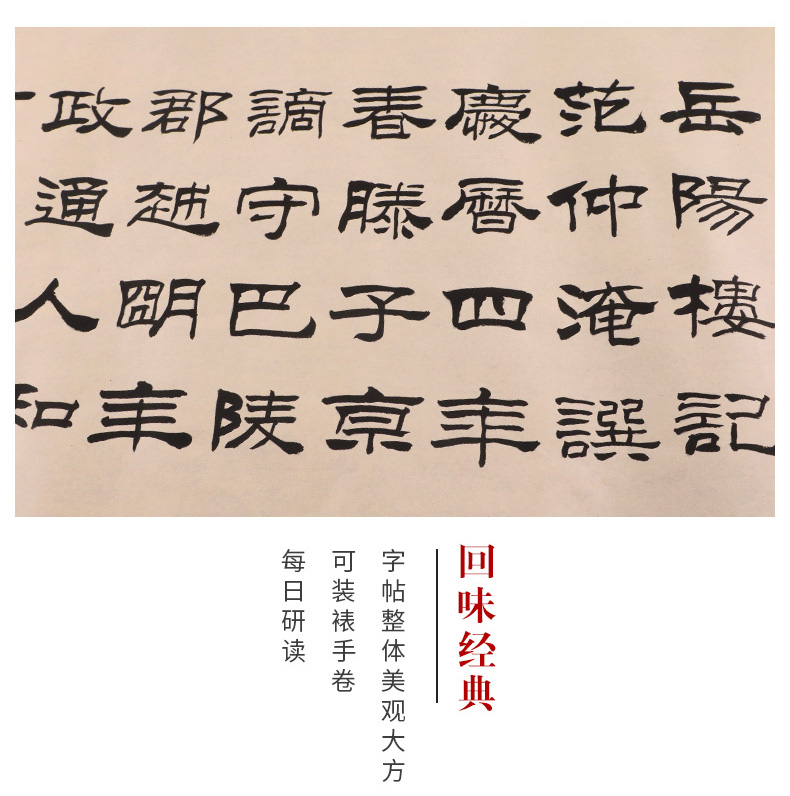 岳陽樓記
范仲淹譔
慶曆四年
春滕子亰
謫守巴陵
郡越朙年
政通人和
回味经典
字帖整体美观大方
可装裱手卷
每日研读